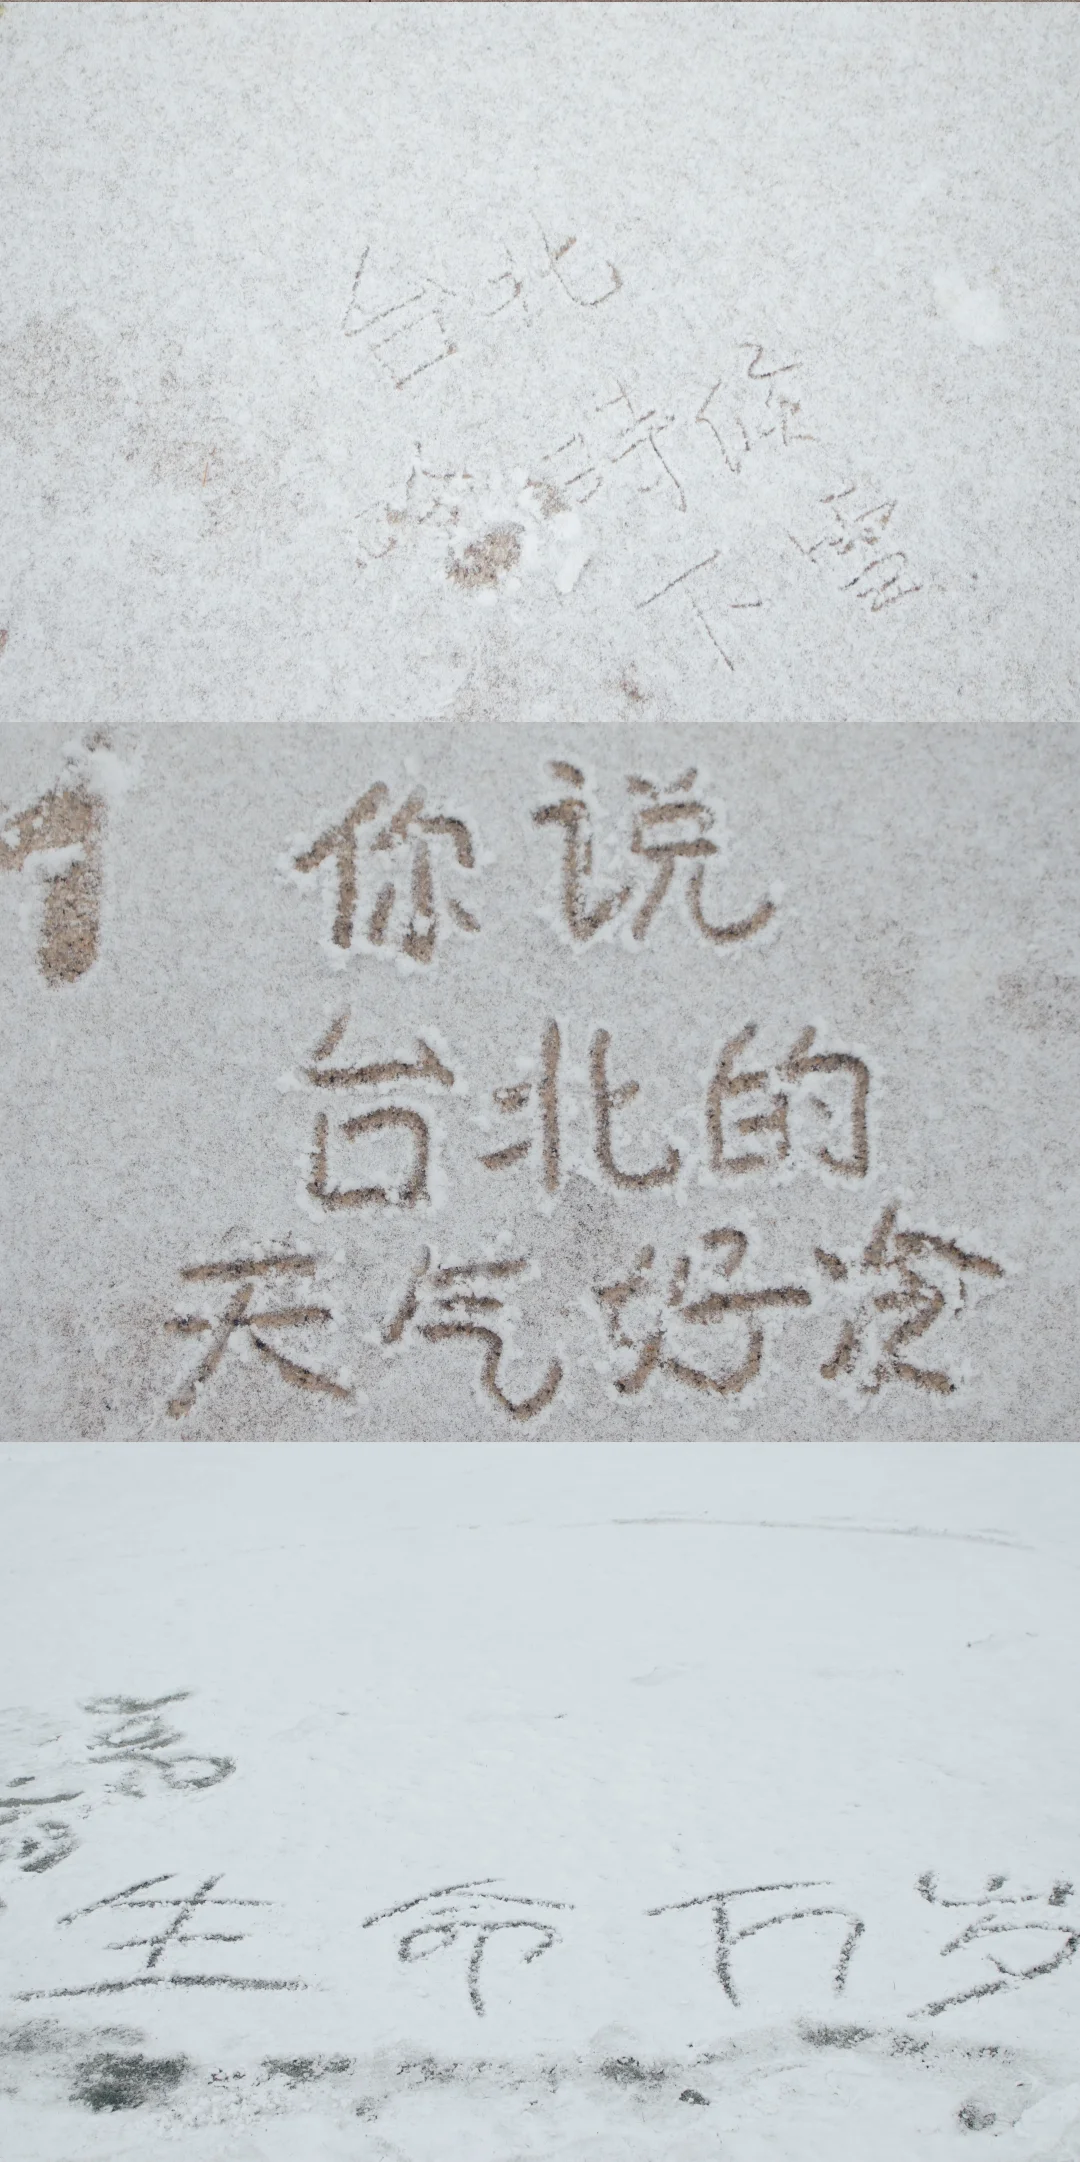 台北
时候
下雪
你说
台北的
天气好冷
生命万岁